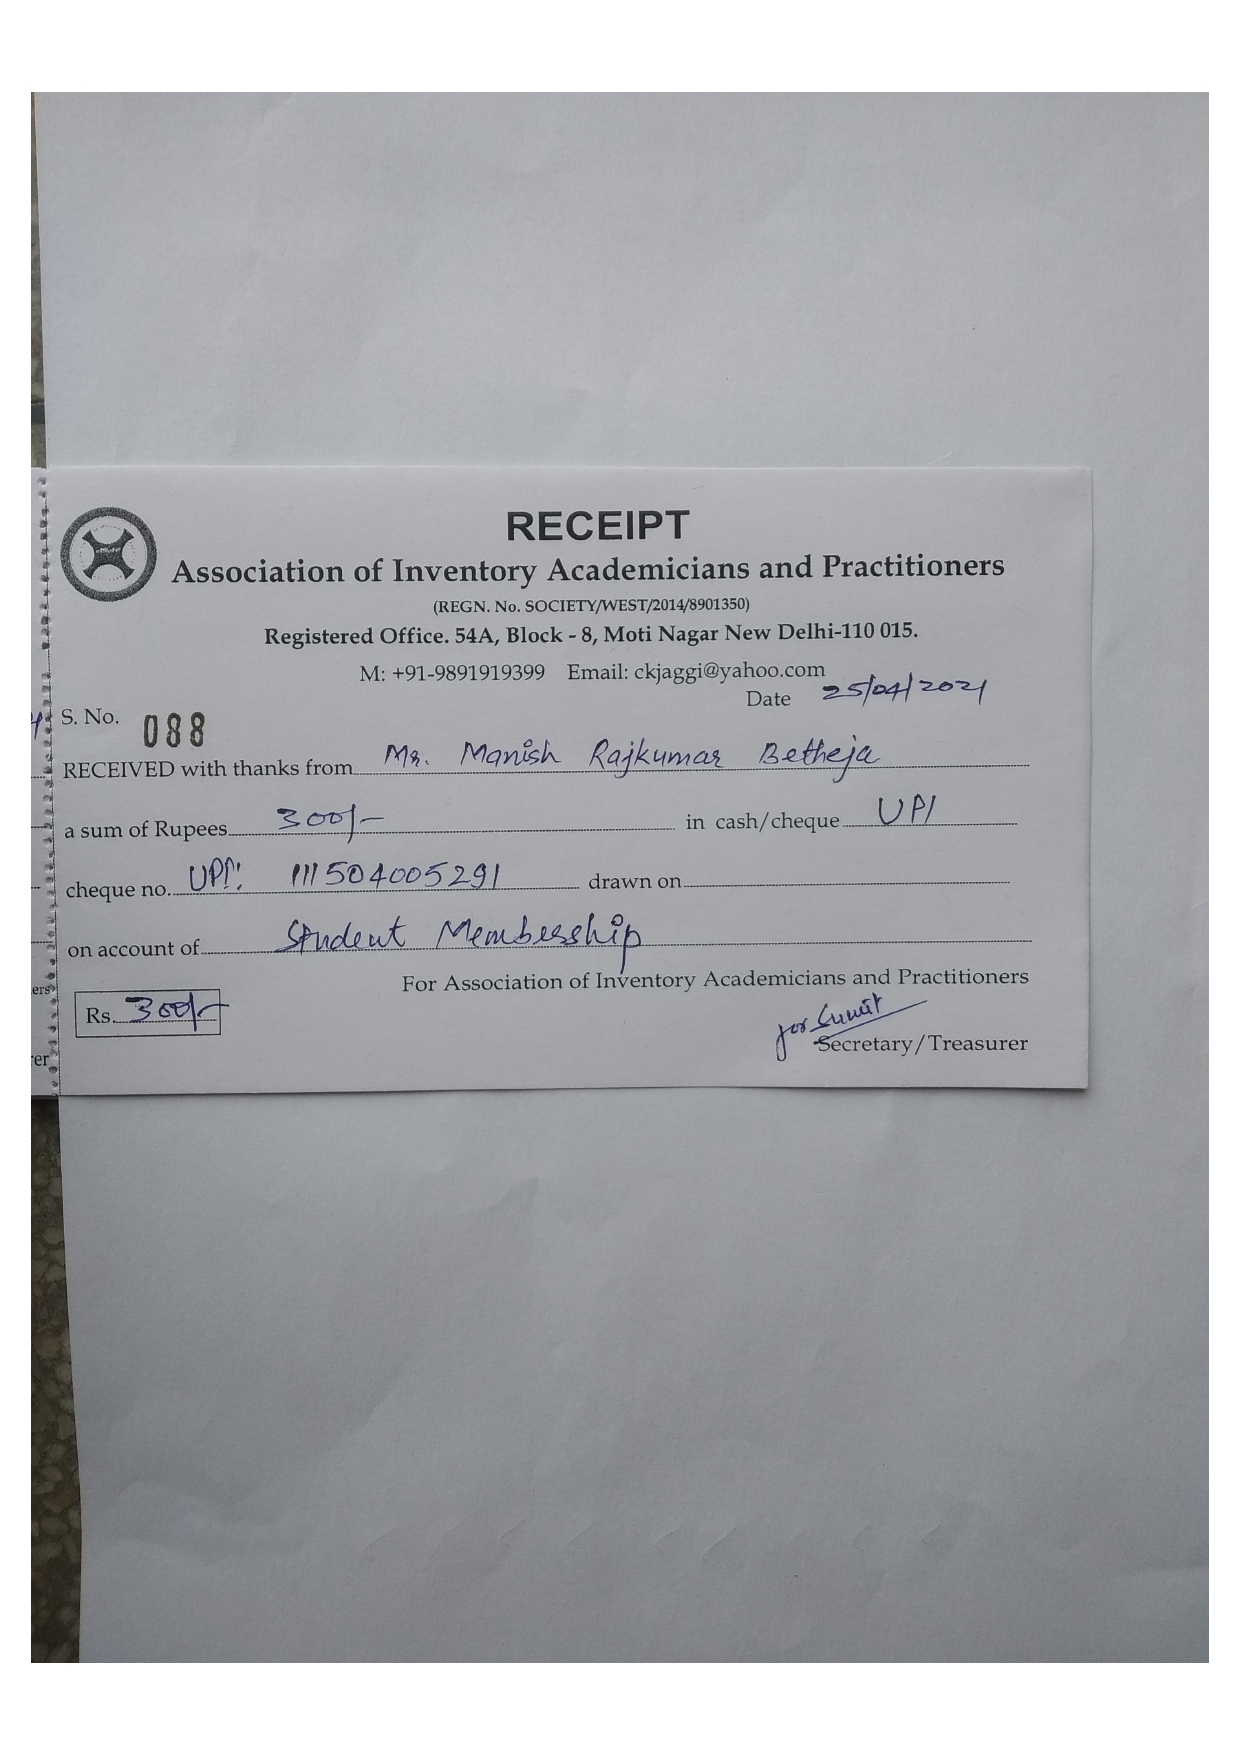 RECEIPT
Association of Inventory Academicians and Practitioners
(REGN. No. SOCIETY/WEST/2014/8901350)
Registered Office. 54A, Block - 8, Moti Nagar New Delhi-110 015.
M: +91-9891919399 Email: ckjaggi@yahoo.com
Date 25/04/2021
S. No. 088
RECEIVED with thanks from Mr. Manish Rajkumar Betheja
a sum of Rupees 300/- in cash/cheque UPI
cheque no. UPI: 111504005291 drawn on
on account of Student Membership
For Association of Inventory Academicians and Practitioners
Rs. 300/-
for Sumit
Secretary/Treasurer